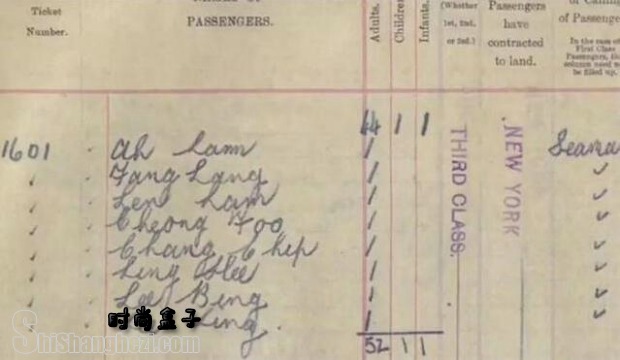 Ticket
Number.
PASSENGERS.
Adults.
Children
Infants.
(Whether
1st, 2nd,
or 3rd.)
Passengers
have
contracted
to land.
of Passenge
In the case of
First Class
Passengers, this
column need n
be filled up.
44 1 1
1601 Ah Lam /
Fang Lang /
Len Lam /
Cheong Foo /
Chang Chip /
Ling Hee /
Lee Bing /
Ling. /
52 1 1
THIRD CLASS.
NEW YORK
Seama
时尚盒子
ShiShanghezi.com